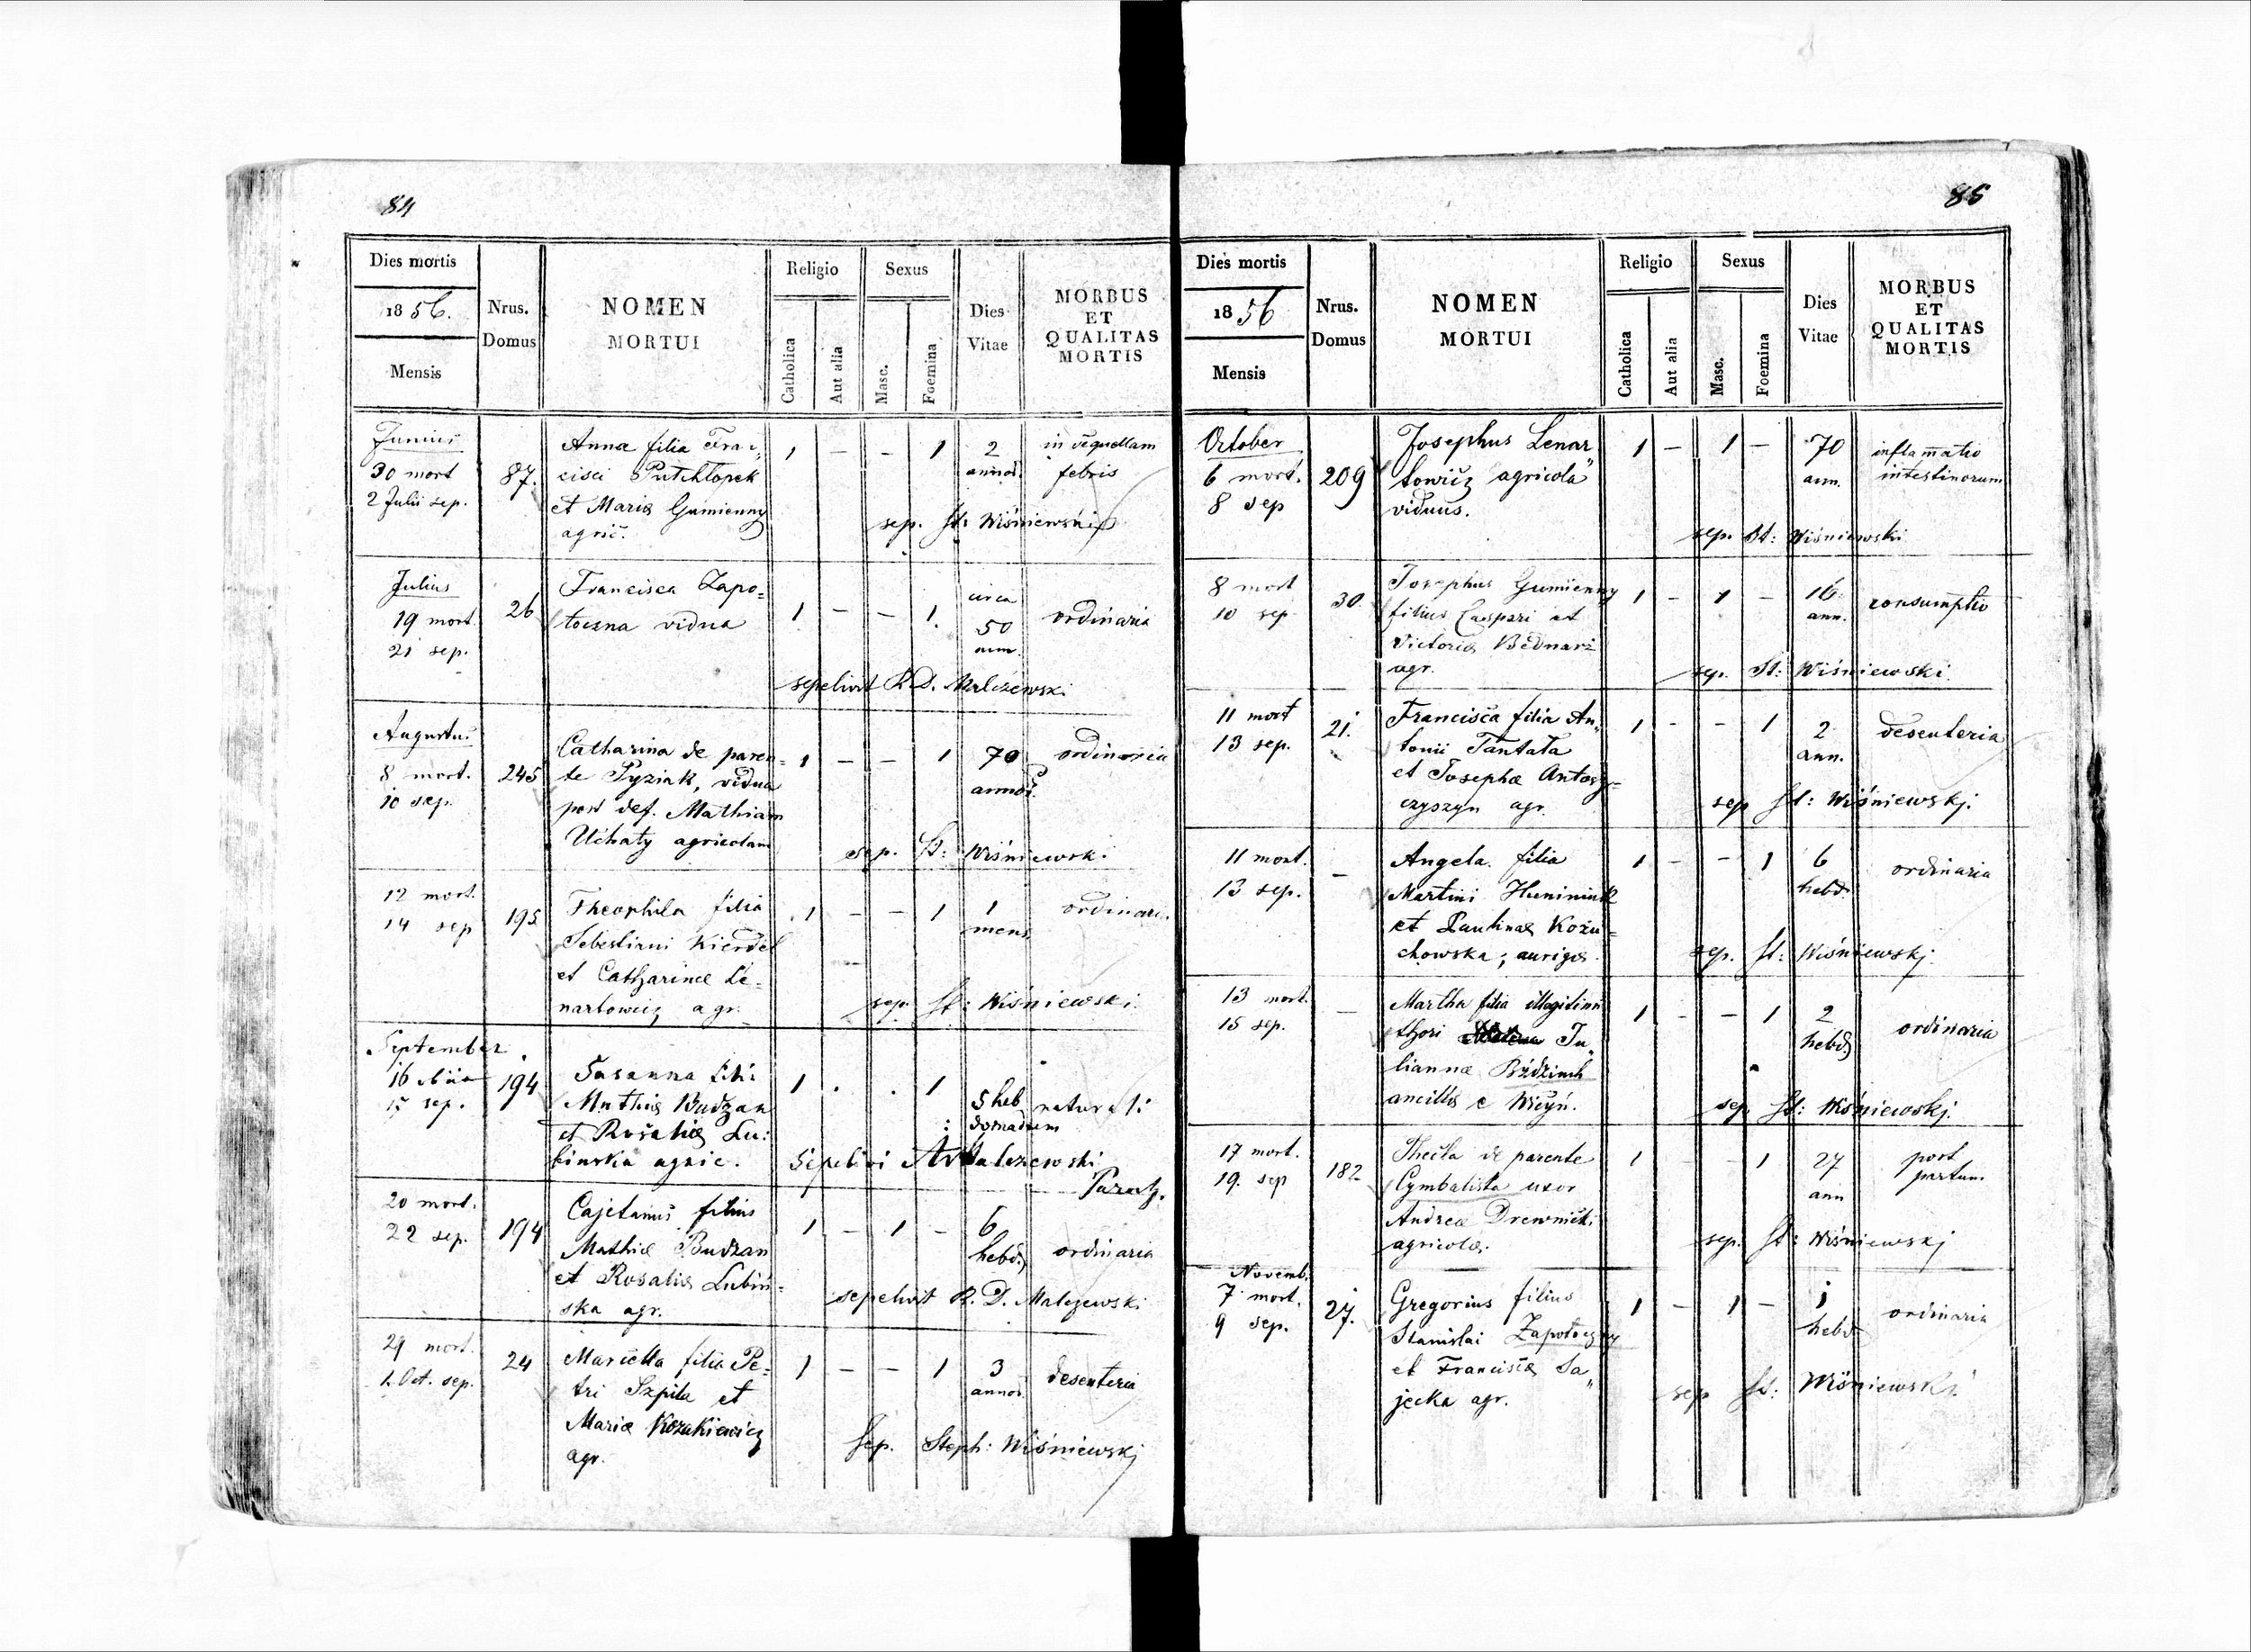 84
Dies mortis
1856.
Mensis
Nrus.
Domus
NOMEN
MORTUI
Religio
Catholica
Aut alia
Sexus
Masc.
Foemina
Dies
Vitae
MORBUS
ET
QUALITAS
MORTIS
Junius
30 mort
2 Julii sep.
87.
Anna filia Fran„
cisci Putchłopek
et Mariæ Gumienny
agric.
1 – – 1
2
annor.
in sequellam
febris
sep. St: Wiśniewski
Julius
19 mort.
21 sep.
26
Francisca Zapo=
toczna vidua
1 – – 1.
circa
50
ann.
ordinaria
sepelivit R.D. Malczewski
Augustus
8 mort.
10 sep.
245
Catharina de paren=
te Pyziak, vidua
post def. Mathiam
Uchaty agricolam
1 – – 1
70
annor.
ordinaria
sep. St: Wiśniewski
12 mort.
14 sep
195
Theophila filia
Sebestiani Kierdel
et Catharinæ Le=
nartowicz agr.
1 – – 1
1
mens.
ordinari.
sep. St: Wiśniewski
September
16
15 sep.
194
Susanna filia
Mathiæ Budzan
et Rosaliæ Lu:
binska agric.
1 . . 1
5 heb
domadum
naturali
Sepelivi Malczewski
Paroch.
20 mort.
22 sep.
194
Cajetanus filius
Mathiæ Budzan
et Rosaliæ Lubiń=
ska agr.
1 – 1 –
6
hebd.
ordinaria
sepelivit R. D. Malczewski
29 mort.
1. Oct. sep.
24
Marcella filia Pe=
tri Szpila et
Mariæ Kozakiewicz
agr.
1 – – 1
3
annor.
desenteria
Sep. Steph: Wiśniewskj
85
Dies mortis
1856
Mensis
Nrus.
Domus
NOMEN
MORTUI
Religio
Catholica
Aut alia
Sexus
Masc.
Foemina
Dies
Vitae
MORBUS
ET
QUALITAS
MORTIS
October
6 mort.
8 sep
209
Josephus Lenar„
towicz agricola
viduus.
1 – 1 –
70
ann.
inflam̅atio
intestinorum
sep. St: Wiśniewski
8 mort
10 sep.
30.
Josephus Gumienny
filius Caspari et
Victoriæ Bednarz
agr.
1 – 1 –
16
ann.
consumptio
sep. St: Wiśniewski
11 mort
13 sep.
21.
Francisca filia An„
tonii Tantala
et Josephæ Antosz=
czyszyn agr.
1 - - 1
2
ann.
desenteria
sep St: Wiśniewskj.
11 mort.
13 sep.
–
Angela filia
Martini Huniniuk
et Paulinæ Kożu=
chowska, aurigæ.
1 – – 1
6
hebd.
ordinaria
sep. St: Wiśniewskj
13 mort.
15 sep.
–
Martha filia illegitimi
thori Ju„
liannæ
ancillæ e
1 - – 1
2
hebd.
ordinaria
sep St: Wiśniewskj.
17 mort.
19. sep
182
Thecla de parente
Cymbalista uxor
Andreæ Drewnicki
agricolæ.
1 - - 1
27
ann
post
partum.
sep. St: Wiśniewskj
Novemb.
7 mort.
9 sep.
27.
Gregorius filius
Stanislai Zapotoczny
et Franciscæ Sa„
jecka agr.
1 – 1 –
1
hebd
ordinaria
sep St: Wiśniewski